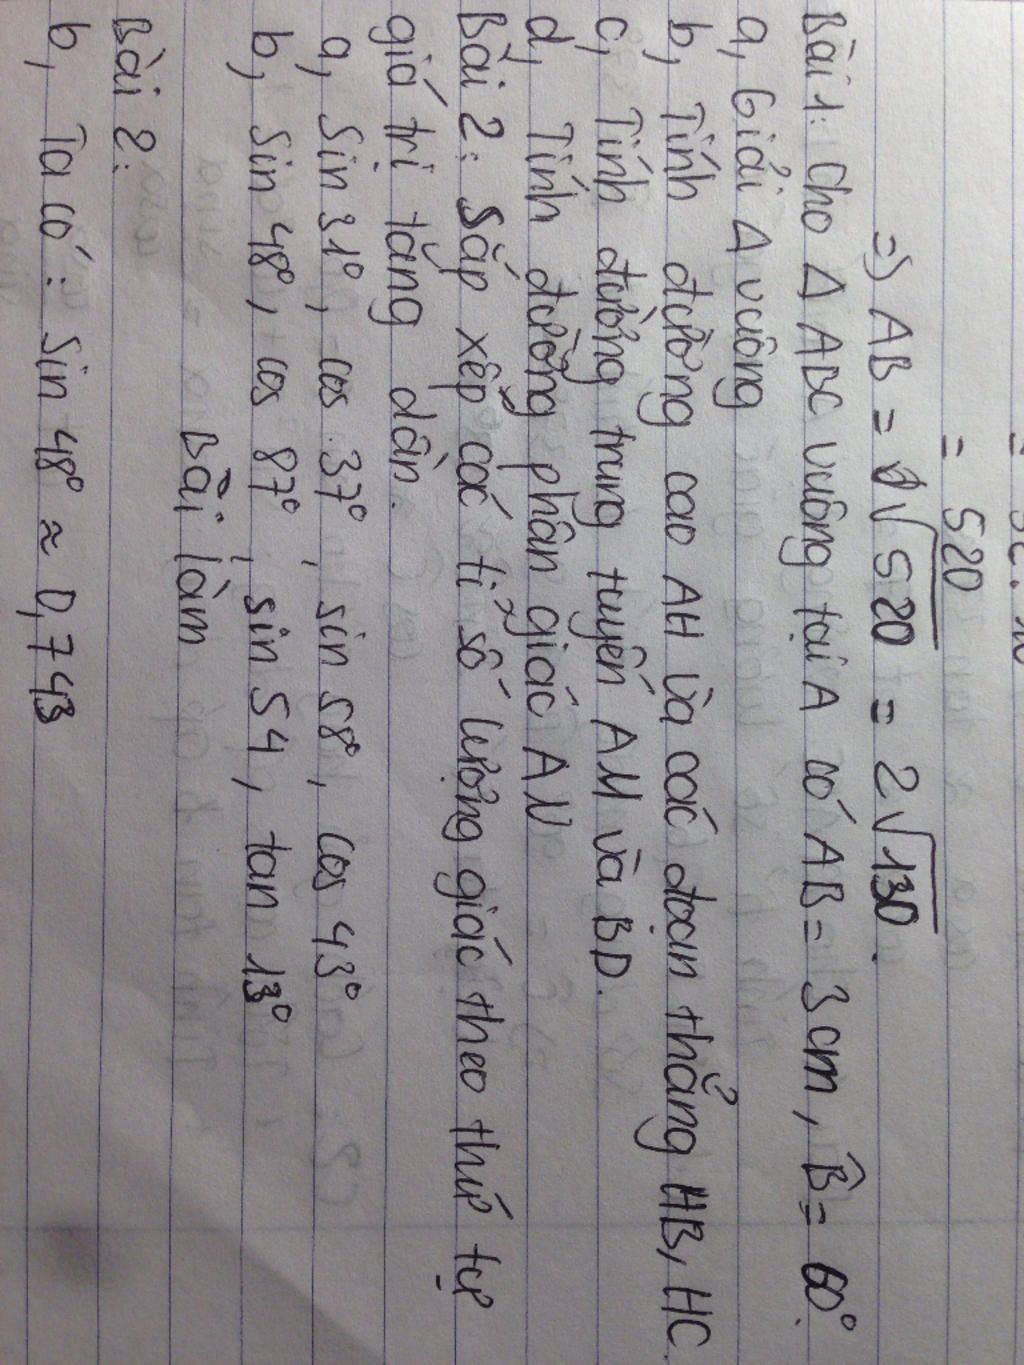 = 520
=) AB = √520 = 2√130.
Bài 1: Cho Δ ABC vuông tại A có AB = 3cm, B̂ = 60°.
a, Giải Δ vuông
b, Tính đường cao AH và các đoạn thẳng HB, HC
c, Tính đường trung tuyến AM và BD.
d, Tính đường phân giác AN
Bài 2: Sắp xếp các tỉ số lượng giác theo thứ tự
giá trị tăng dần.
a, Sin 31°, cos 37°, sin 58°, cos 43°
b, Sin 48°, cos 87°, sin 54, tan 13°
Bài làm
Bài 2:
b, Ta có: Sin 48° ≈ 0,743